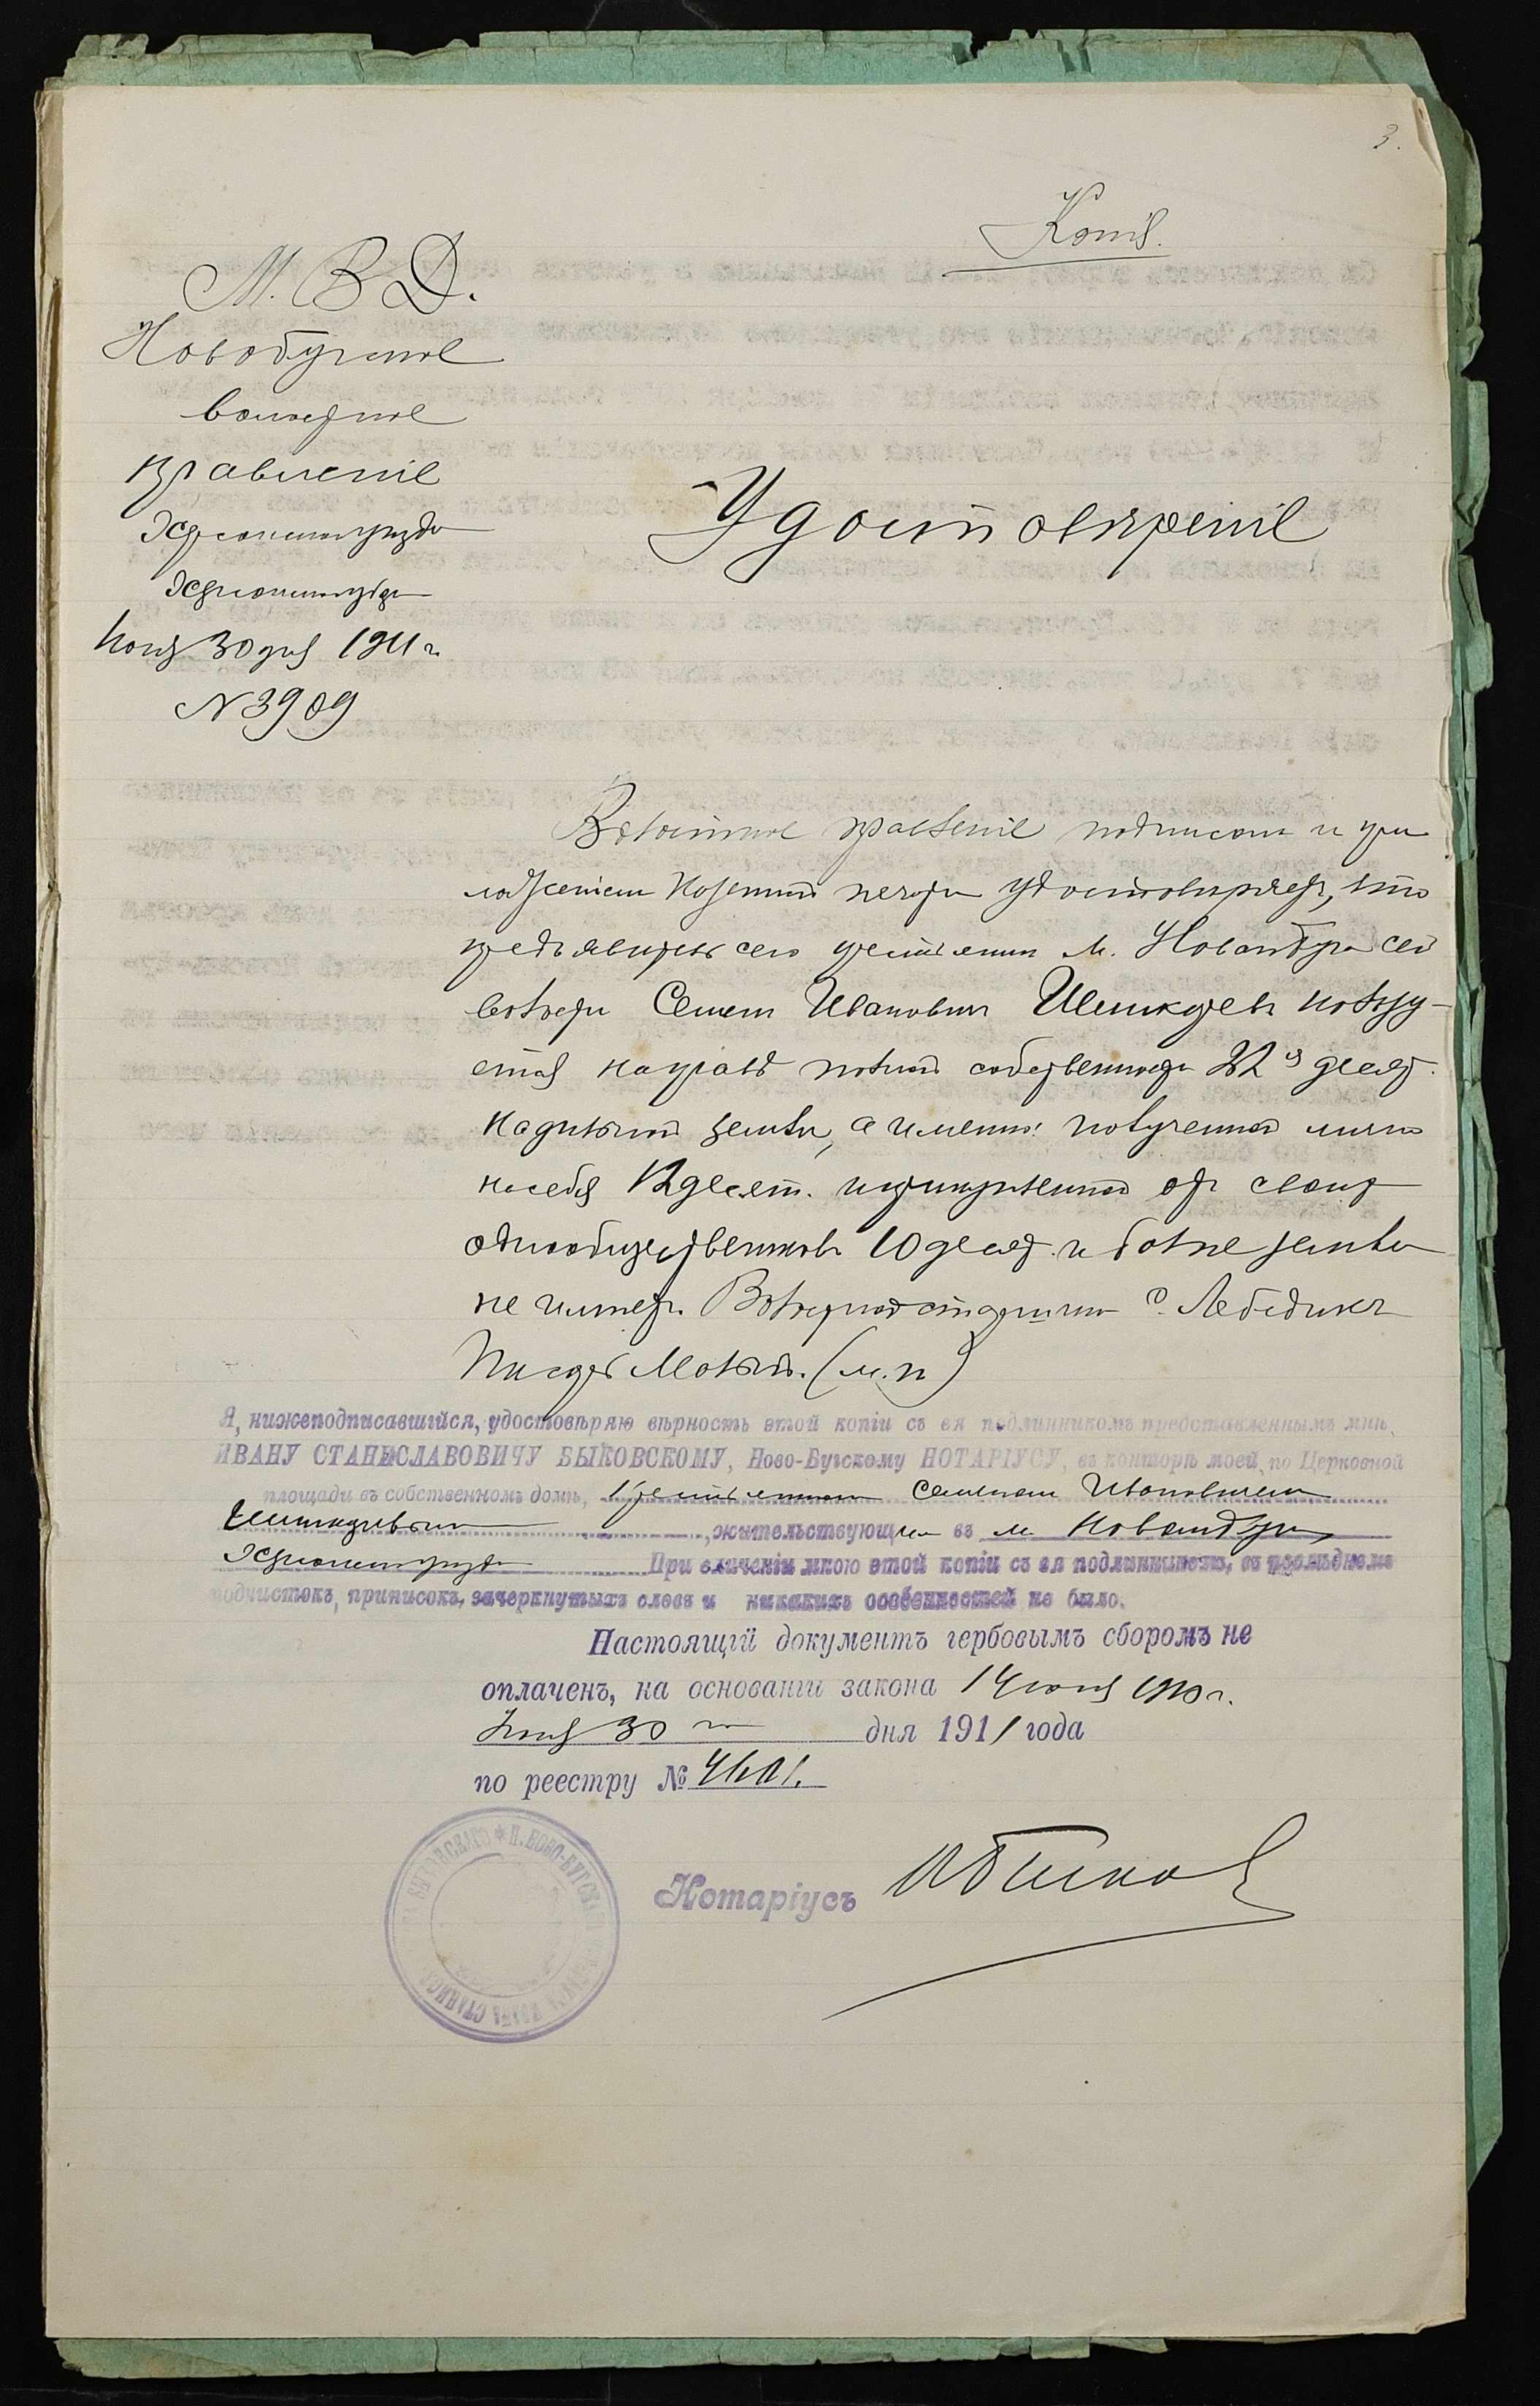 3.
Копія.
М. В. Д.
Новобугское
волостное
правленіе
Херсонскаго уѣзда
Херсонской губ.
30 дня 1911 г.
№ 3909
Удостовѣреніе
Волостное правленіе подписом и при
ложеніем казенной печати удостовѣряет, что
предъявитель сего крестьянин м. Новаго Буга сей
волости Семен Иванович пользу-
ется на правѣ полной собственности 22 я десят.
надѣльной земли, а именно: полученной лично
на себя 12 десят. и от своих
однообщественников 10 десят. и болѣе земли
не имѣет. Волостной старшина С. Лебедик
Писарь (м. п)
Я, нижеподписавшійся, удостовѣряю вѣрность этой копіи съ ея подлинникомъ представленнымъ мнѣ,
ИВАНУ СТАНИСЛАВОВИЧУ БЫКОВСКОМУ, Ново-Бугскому НОТАРІУСУ, въ конторѣ моей, по Церковной
площади въ собственномъ домѣ, крестьянином Семеном Ивановичем
, жительствующим въ м. Новом Буге,
Херсонскаго уѣзда При сличеніи мною этой копіи съ ея подлинникомъ, въ послѣднемъ
подчистокъ, приписокъ, зачеркнутыхъ словъ и никакихъ особенностей не было.
Настоящій документъ гербовымъ сборомъ не
оплаченъ, на основаніи закона 14 июня 1910 г.
30 го дня 1911 года
по реестру №
Нотаріусъ